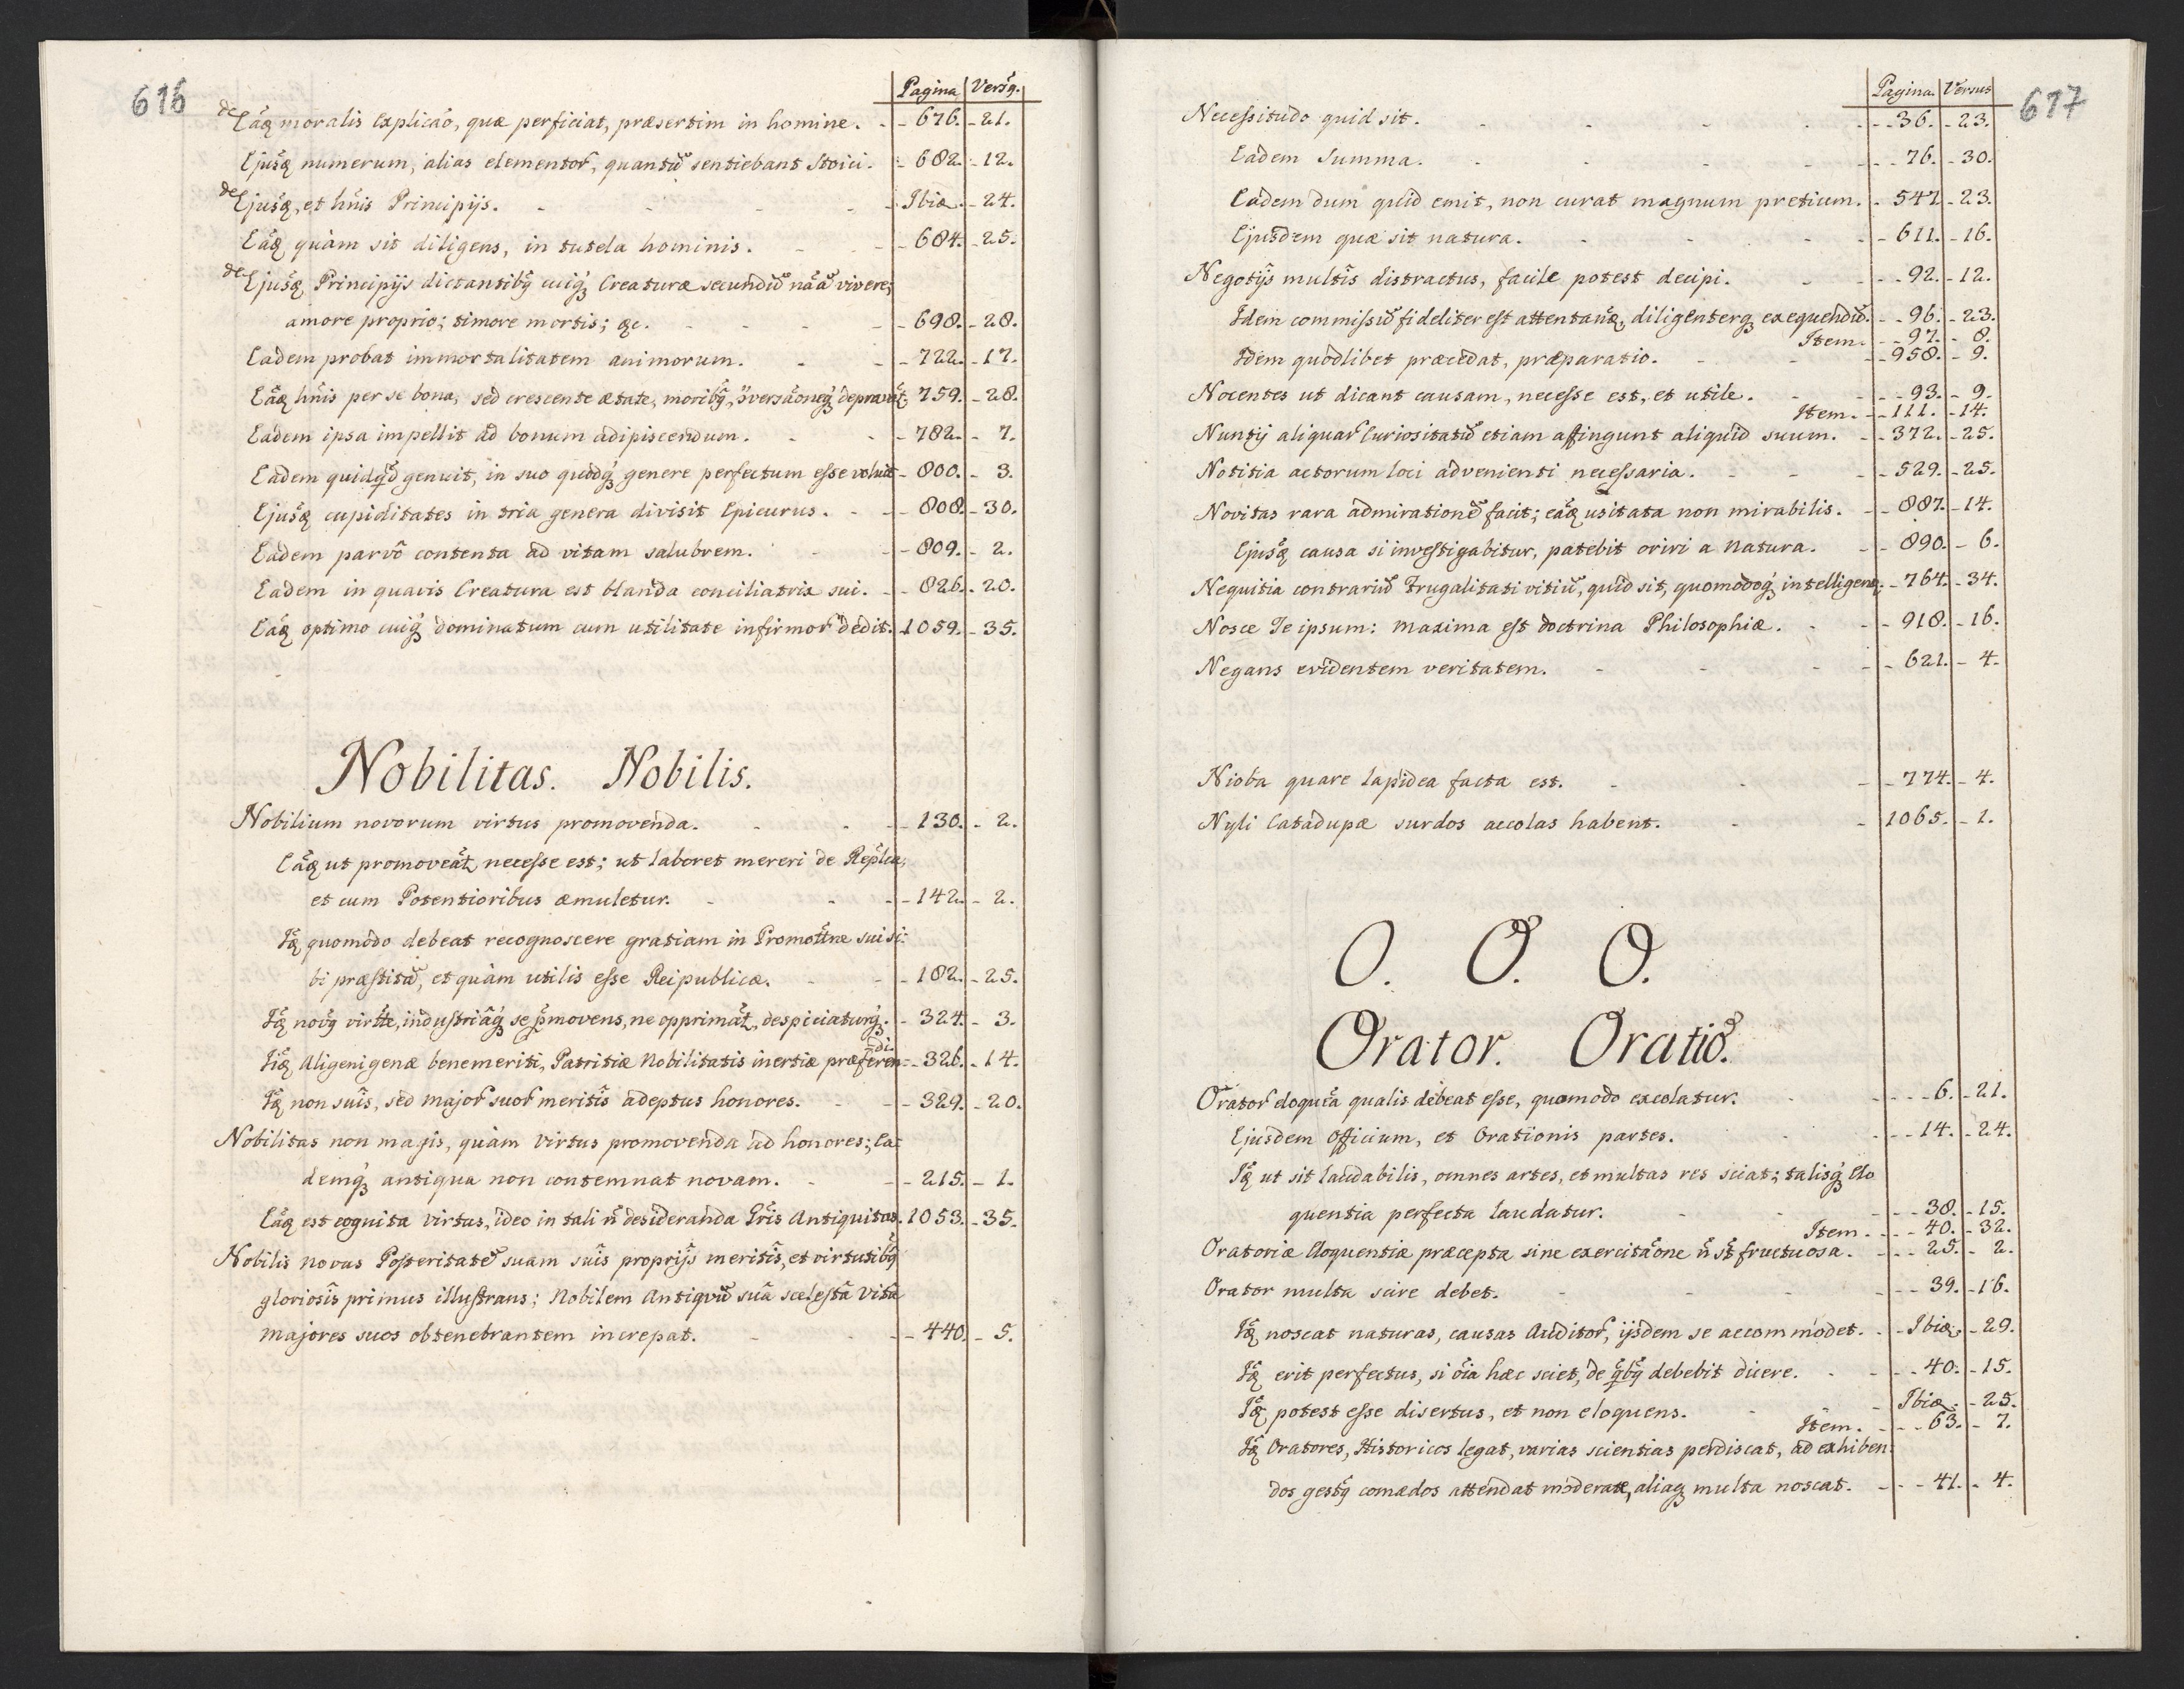 616
Pagina Versꝯ.
de Eâꝗ moralis explicâo, quæ perficiat, præsertim in homine. - - 676. - 21.
Ejusꝗ numerum, alias elementor, quantũ sentiebant Stoici. - 682. - 12.
de Ejusꝗ, et hñis Principijs. - - - - Ibiꝗ. - 24.
Eâꝗ quàm sit diligens, in tutela hominis. - - 684. - 25.
de Ejusꝗ Principijs dictantibꝯ cuiqꝫ Creaturæ secundũ nââ vivere;
amore proprio; timore mortis; &c. - - - - 698. - 28.
Eadem probat immortalitatem animorum. - - 722. - 17.
Eâꝗ hñis per se bona, sed crescente ætate, moribꝯ, ꝯversâoneqꝫ depravât. 759. - 28.
Eadem ipsa impellit ad bonum adipiscendum. - - 782. - 7.
Eadem quidqͥd genuit, in suo quodqꝫ genere perfectum esse voluit - 800. - 3.
Ejusꝗ cupiditates in tria genera divisit Epicurus. - - 808. - 30.
Eadem parvô contenta ad vitam salubrem. - - 809. - 2.
Eadem in quavis Creatura est blanda conciliatrix sui. - - 826. - 20.
Eâꝗ optimo cuiqꝫ dominatum cum utilitate infirmor dedit. 1059. - 35.
Nobilitas. Nobilis.
Nobilium novorum virtus promovenda. - - - 130. - 2.
Eâꝗ ut promoveât, necesse est; ut laboret mereri de Repľca,
et cum Potentioribus æmuletur. - - - 142. - 2.
Iꝗ quomodo debeat recognoscere gratiam in Promottne sui si-
bi præstitã, et quàm utilis esse Reipublicæ. - - 182. - 25.
Iꝗ novꝯ virtte, industriâqꝫ se ꝓmovens, ne opprimât, despiciaturqꝫ. - 324. - 3.
Iiꝗ Aligenigenæ benemeriti, Patritiæ Nobilitatis inertiæ præferen-di. - 326. - 14.
Iꝗ non suîs, sed major suor meritîs adeptus honores. - - 329. - 20.
Nobilitas non magis, quàm Virtus promovenda ad honores; Ea-
demqꝫ antiqua non contemnat novam. - - 215. - 1.
Eâꝗ est cognita virtus, ideo in tali ñ desideranda Gr̃is Antiquitas. 1053. - 35.
Nobilis novus Posteritatẽ suam suîs proprijs meritîs, et virtutibꝯ
gloriosîs primus illustrans; Nobilem Antiqvũ suâ scelestâ vitâ
majores suos obtenebrantem increpat. - - - 440. - 5.
617
Pagina. Versus
Necessitudo quid sit. - - - - - 36. - 23.
Eadem Summa. - - - - 76. - 30.
Eadem dum quid emit, non curat magnum pretium. - 547. - 23.
Ejusdem quæ sit natura. - - - - 611. - 16.
Negotijs multîs distractus, facile potest decipi. - - 92. - 12.
Idem commissũ fideliter est attentanꝗ, diligenterqꝫ exequendũ. - - 96. - 23.
Item. - - 97. - 8.
Idem quodlibet præcedat, præparatio. - - - 958. - 9.
Nocentes ut dicant causam, necesse est, et utile. - - - 93. - 9.
Item. - - 111. - 14.
Nuntij aliquar Curiositatũ etiam affingunt aliquid suum. - - 372. - 25.
Notitia actorum loci advenienti necessaria. - - - 529. - 25.
Novitas rara admirationẽ facit; eâꝗ usitata non mirabilis. - - 887. - 14.
Ejusꝗ causa si investigabitur, patebit oriri a Natura. - - 890. - 6.
Nequitia contrariũ Frugalitati vitiũ, quid sit, quomodoqꝫ intelligenꝗ. - 764. - 34.
Nosce Te ipsum: maxima est doctrina Philosophiæ. - - 918. - 16.
Negans evidentem veritatem. - - - - 621. - 4.
Nioba quare lapidea facta est. - - - 774. - 4.
Nyli Catadupæ surdos accolas habent. - - 1065. - 1.
O. O. O.
Orator. Oratiõ.
Orator eloquêa qualis debeat esse, quomodo excolatur. - - - - 6. - 21.
Ejusdem Officium, et Orationis partes. - - - 14. - 24.
Iꝗ ut sit laudabilis, omnes artes, et multas res sciat; talisqꝫ Elo
quentia perfecta laudatur. - - - - 38. - 15.
Item. - - - 40. - 32.
Oratoriæ Eloquentiæ præcepta sine exercitâone ñ st̃ fructuosa. - - - 25. - 2.
Orator multa scire debet. - - - - - 39. - 16.
Iꝗ noscat naturas, causas Auditor, ijsdem se accommodet. - - Ibiꝗ. - 29.
Iꝗ erit perfectus, si oîa hæc sciet, de qͥbꝯ debebit dicere. - - - 40. - 15.
Iꝗ potest esse disertus, et non eloquens. - - Ibiꝗ. - 25.
Item. - - - 63. - 7.
Iꝗ Oratores, Historicos legat, varias scientias perdiscat, ad exhiben-
dos gestꝯ comædos attendat moderate, aliaqꝫ multa noscat. - - - 41. - 4.